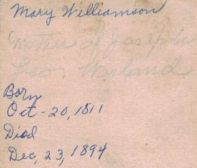 Mary Williamson
Mother of Joseph
Born
Oct - 20, 1811
Died
Dec, 23, 1894